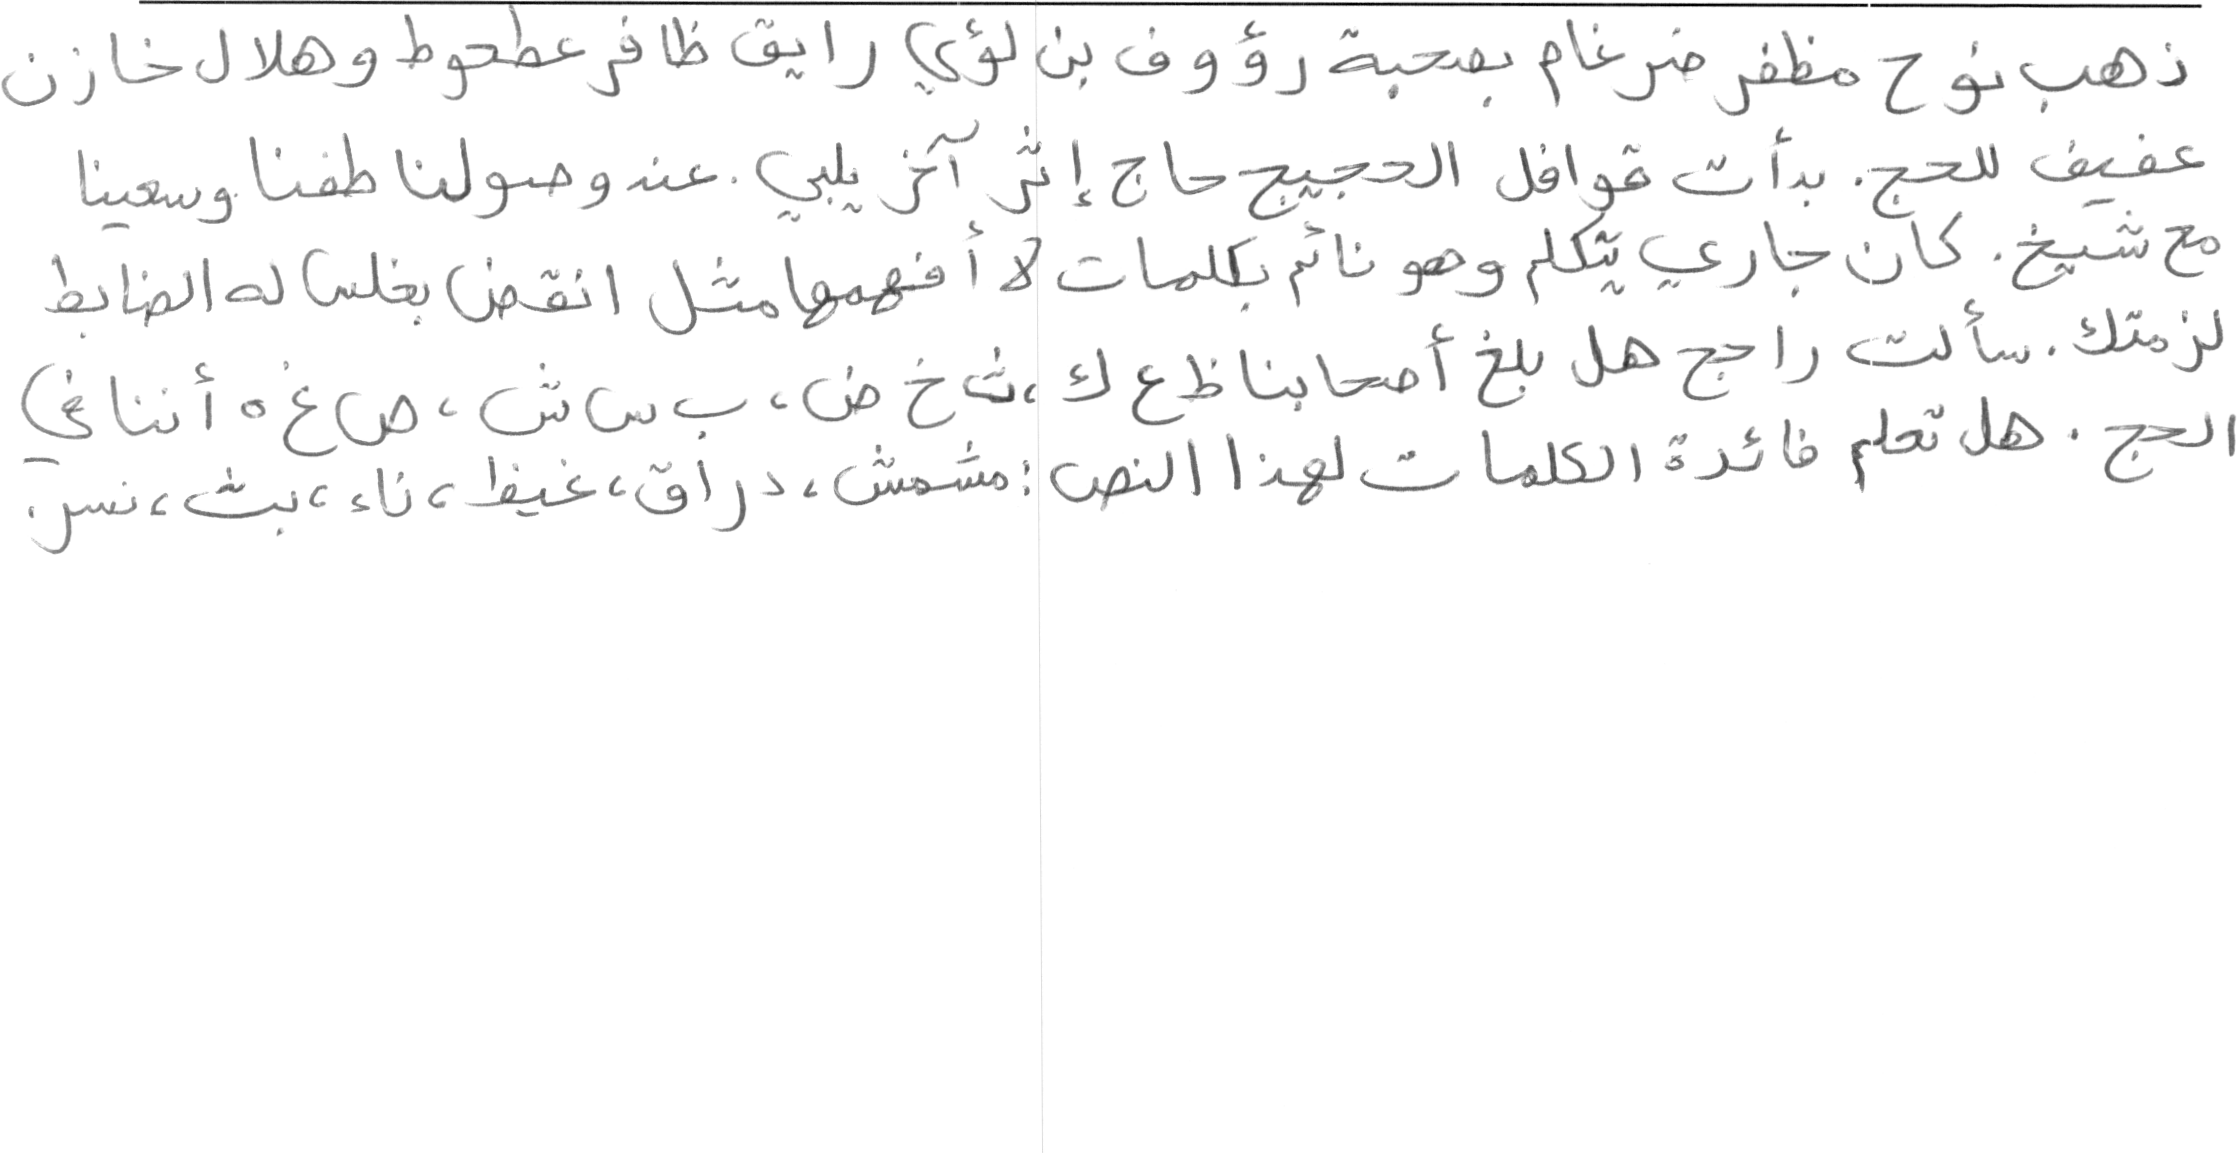 ذهب نوح مظفر ضرغام بصحبة رؤوف بن لؤي رايق ظافر عطحوط وهلال خازن
عفيف للحج. بدأت قوافل الحجيج حاج إثر آخر يلبي. عند وصولنا طفنا وسعينا
مع شيخ. كان جاري يتكلم وهو نائم بكلمات لا أفهمها مثل انقض بغلس له الضابط
لزمتك. سألت راجح هل بلغ أصحابنا ظ ع ك، ث خ ض، ب س ش، ص غ ه أننا في
الحج. هل تعلم فائدة الكلمات لهذا النص: مشمش، دراق، غيظ، ناء، بث، نسر.